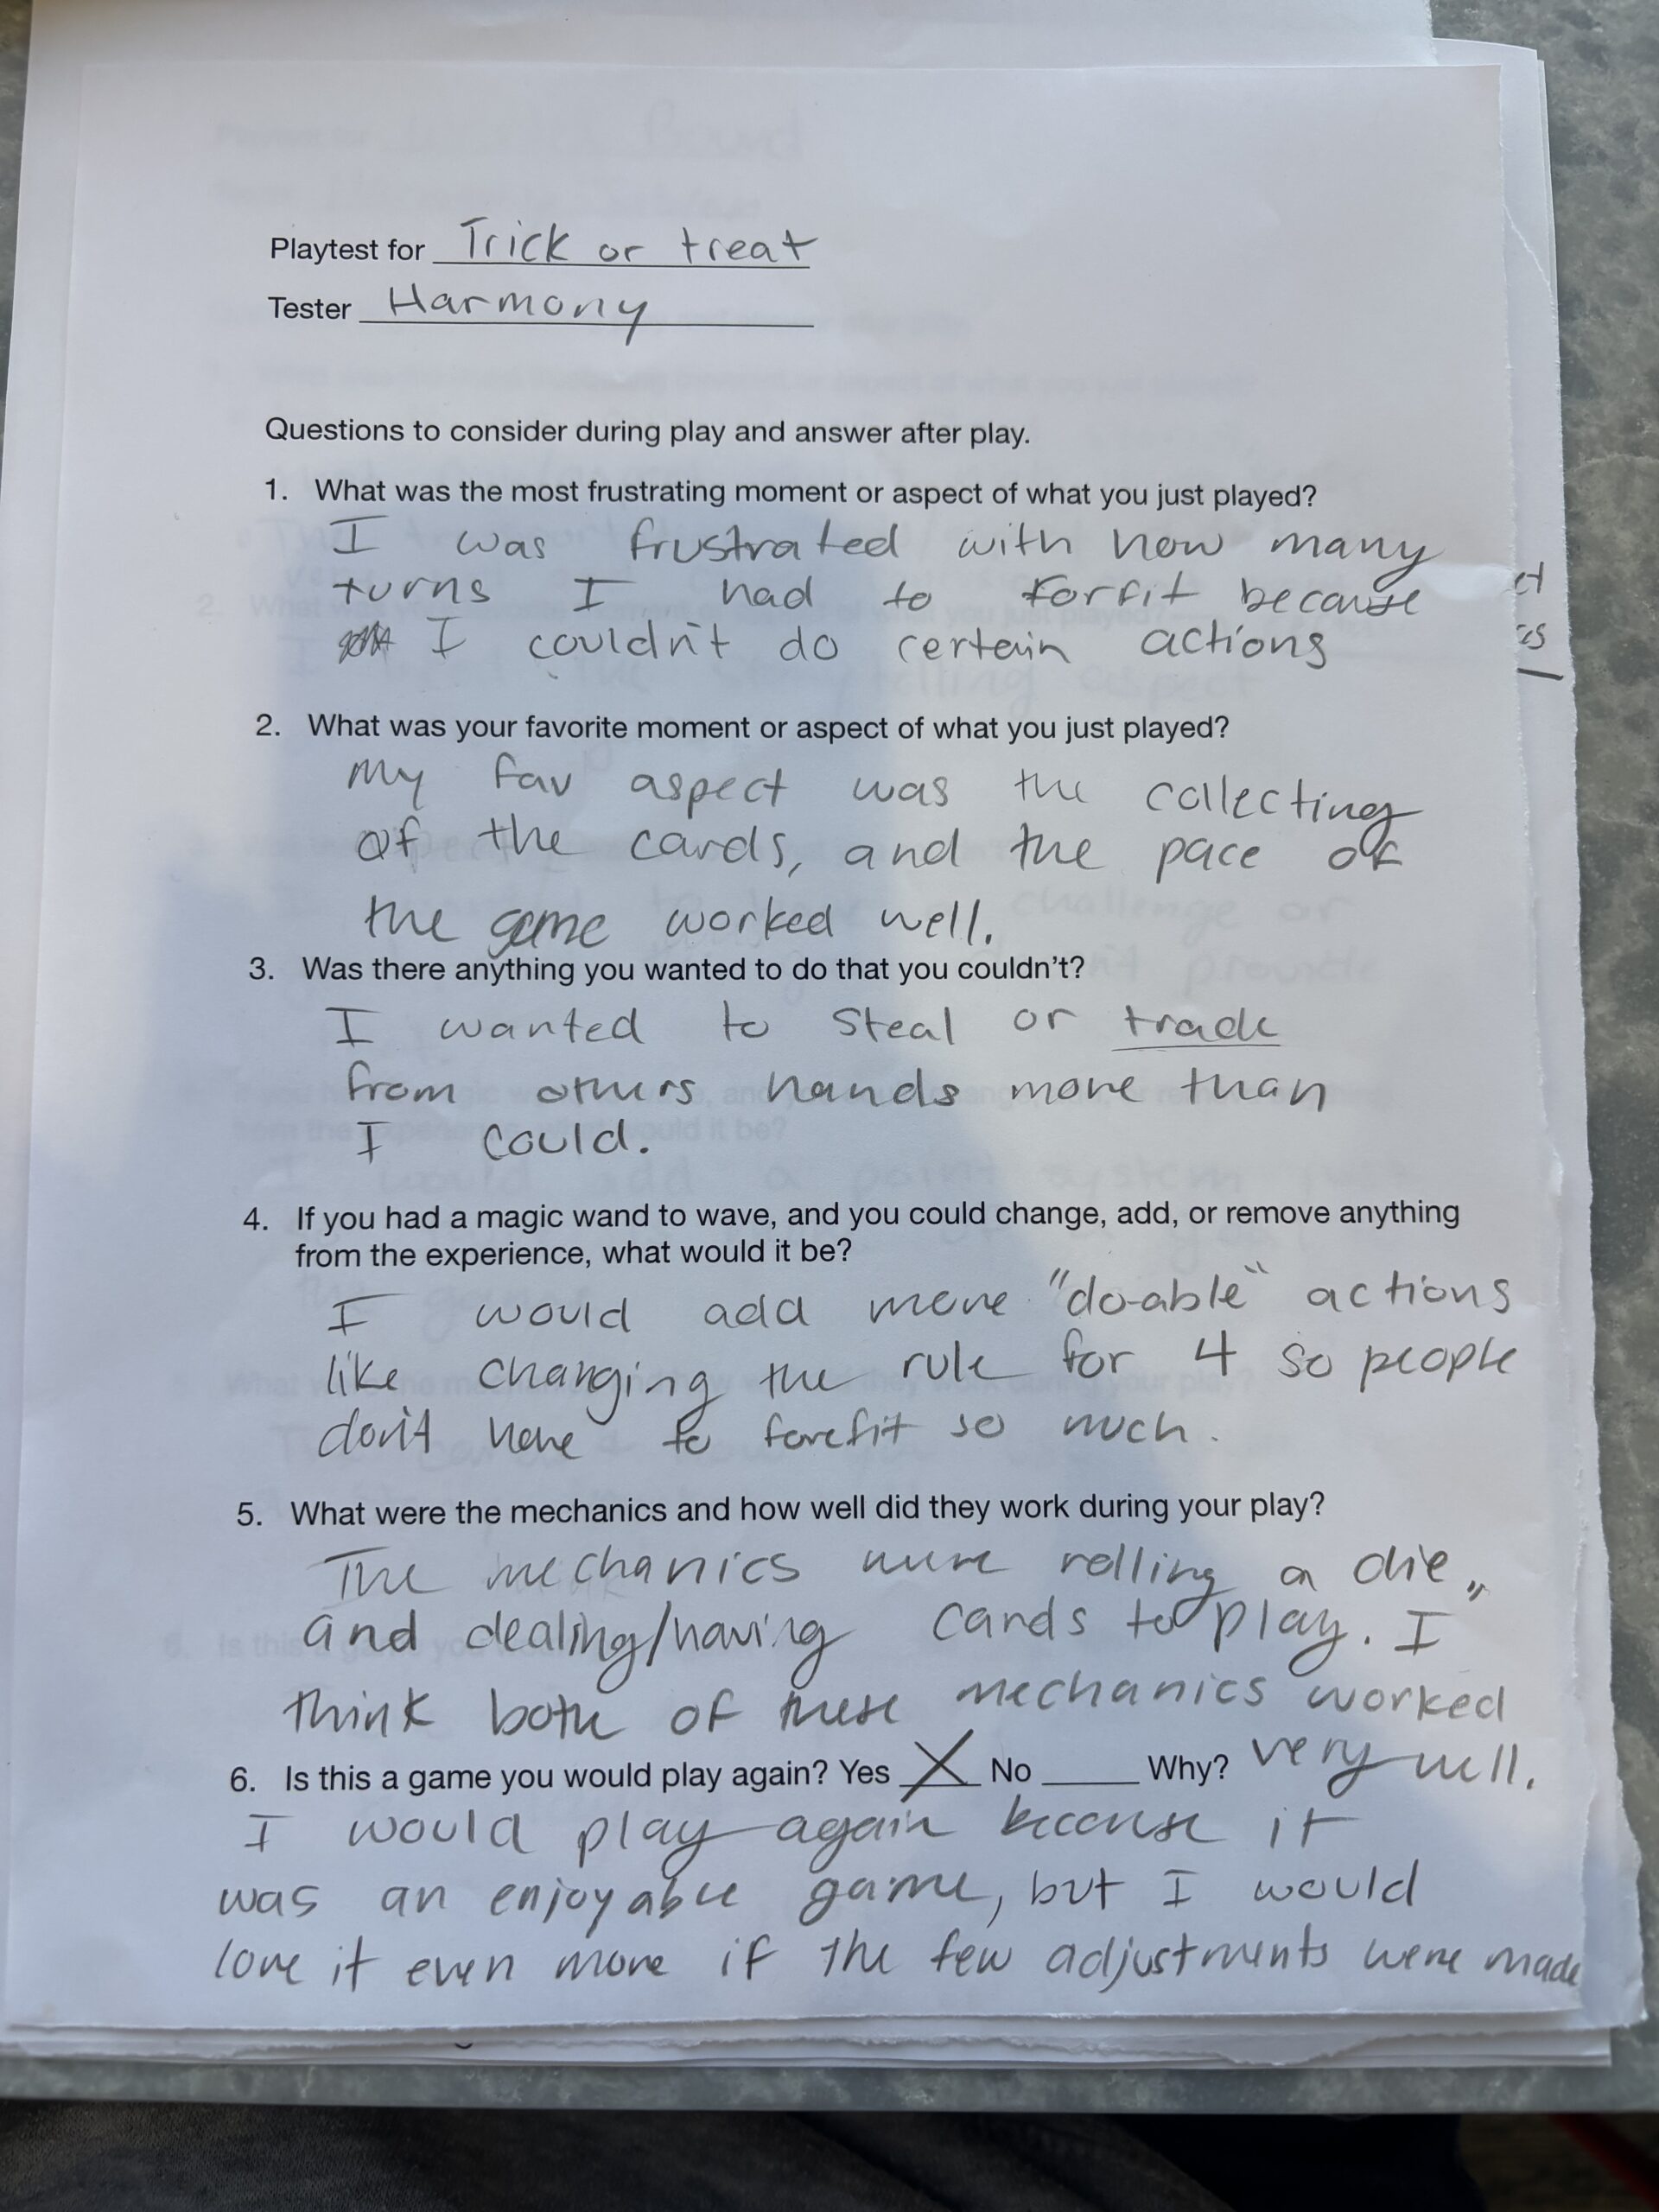 Playtest for Trick or treat
Tester Harmony
Questions to consider during play and answer after play.
1. What was the most frustrating moment or aspect of what you just played?
I was frustrated with how many
turns I had to forfit because
I couldn't do certain actions
2. What was your favorite moment or aspect of what you just played?
My fav aspect was the collecting
of the cards, and the pace of
the game worked well.
3. Was there anything you wanted to do that you couldn't?
I wanted to steal or trade
from others hands more than
I could.
4. If you had a magic wand to wave, and you could change, add, or remove anything
from the experience, what would it be?
I would add more "do-able" actions
like changing the rule for 4 so people
don't have to forefit so much.
5. What were the mechanics and how well did they work during your play?
The mechanics were rolling a die,
and dealing/having cards to play. I
think both of these mechanics worked
very well.
6. Is this a game you would play again? Yes X No ____ Why?
I would play again because it
was an enjoyable game, but I would
love it even more if the few adjustments were made